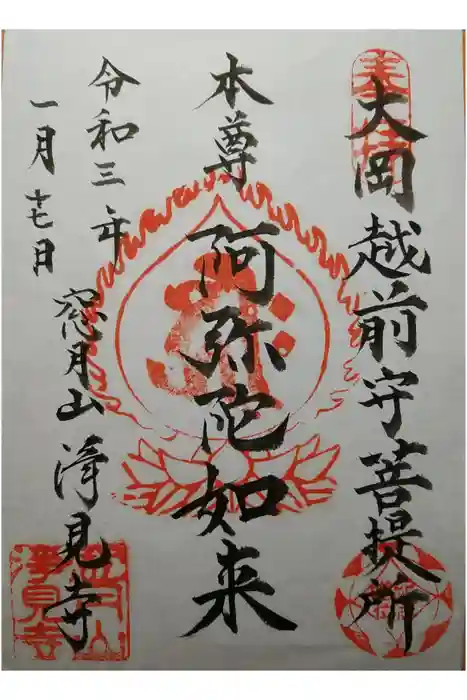 大岡越前守菩提所
本尊
阿弥陀如来
令和三年
一月十七日
窓月山 浄見寺
浄見寺